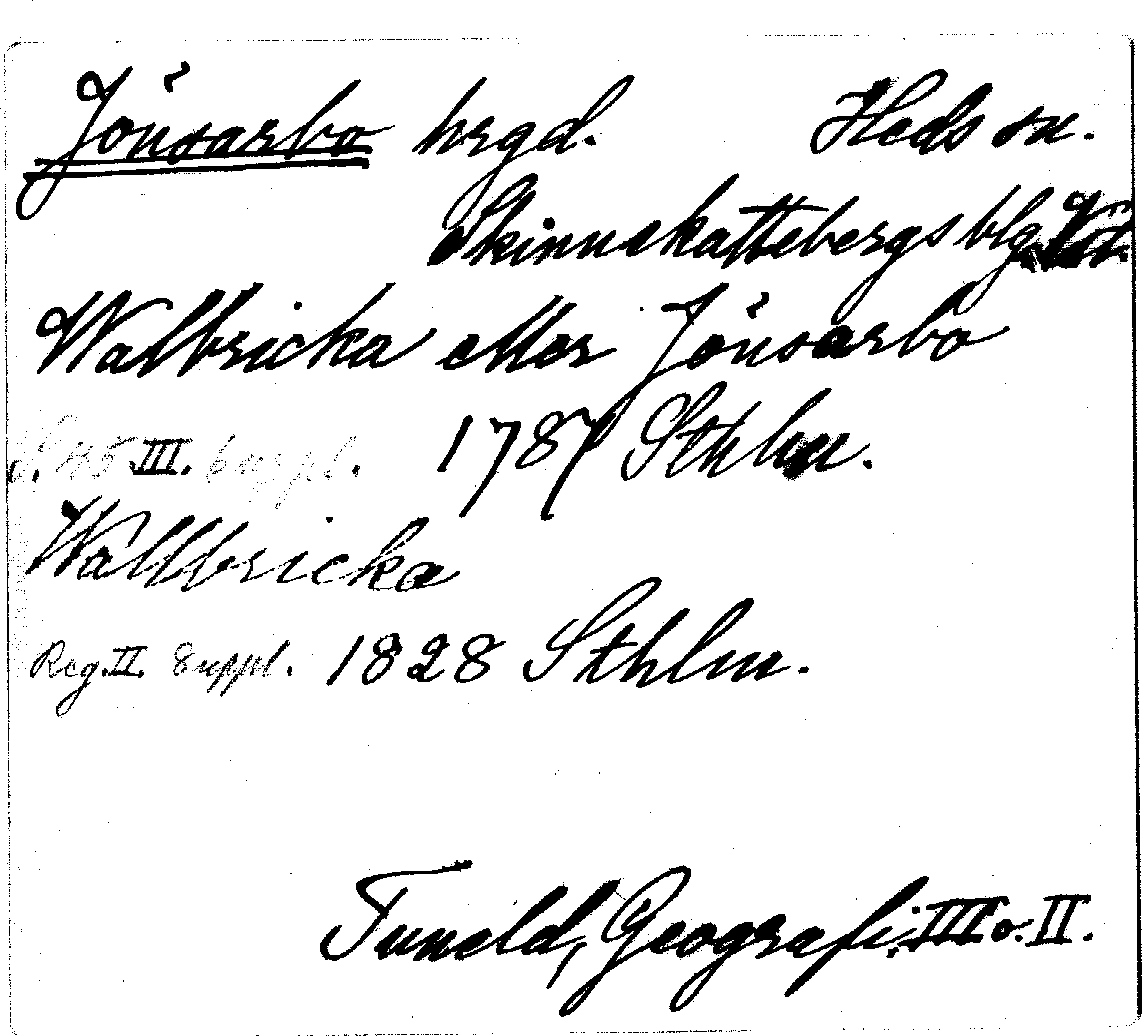 Jönsarbo hrgd. Heds sn.
Skinnskattebergs blg. Vstm.
Walbricka eller Jönsarbo
S. 45 III. Suppl. 1787 Sthlm.
Wallbricka
Reg. II. Suppl. 1828 Sthlm.
Tuneld, Geografi. III o. II.